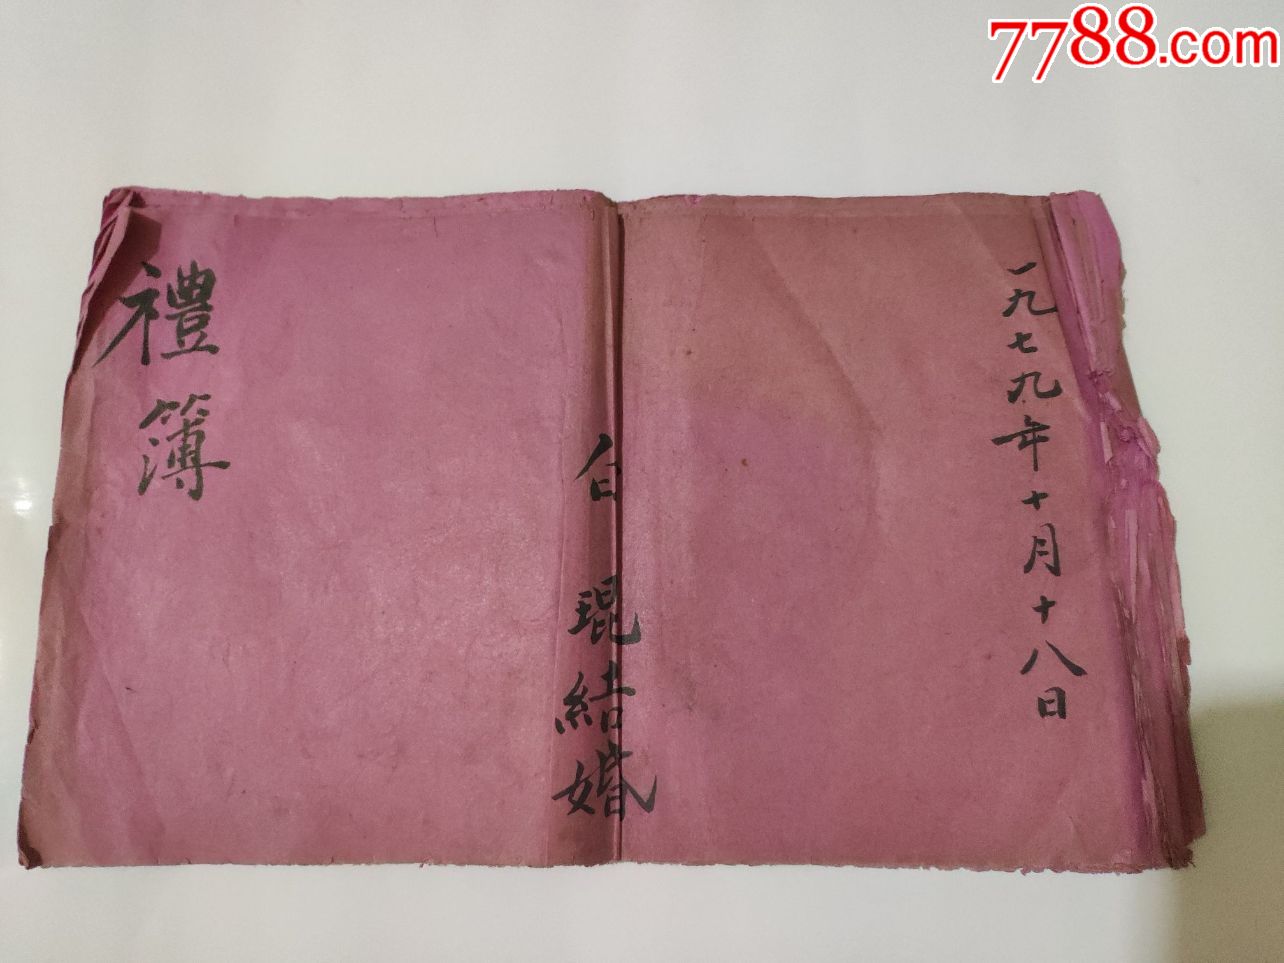 7788.com
一九七九年十月十八日
白琨結婚
禮簿